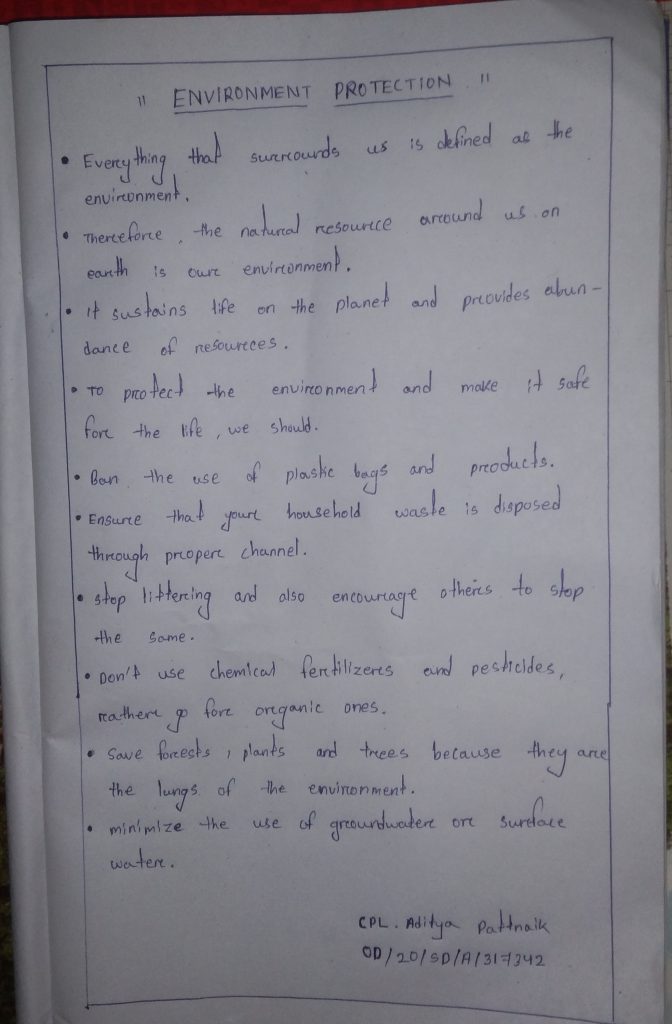 " ENVIRONMENT PROTECTION "
• Everything that surrounds us is defined as the
environment.
• Therefore, the natural resource around us on
earth is our environment.
• It sustains life on the planet and provides abun-
dance of resources.
• To protect the environment and make it safe
for the life, we should.
• Ban the use of plastic bags and products.
• Ensure that your household waste is disposed
through proper channel.
• Stop littering and also encourage others to stop
the same.
• Don't use chemical fertilizers and pesticides,
rather go for organic ones.
• Save forests, plants and trees because they are
the lungs of the environment.
• minimize the use of groundwater or surface
water.
CPL. Aditya Pattnaik
OD/20/SD/A/317342